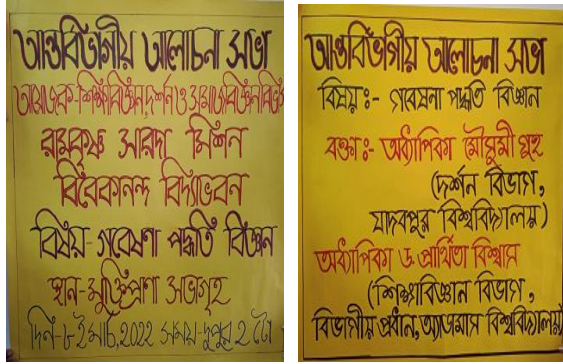 আন্তর্বিভাগীয় আলোচনা সভা
আয়োজক-শিক্ষাবিজ্ঞান, দর্শন ও সমাজবিজ্ঞান বিভাগ
রামকৃষ্ণ সারদা মিশন
বিবেকানন্দ বিদ্যাভবন
বিষয়-গবেষণা পদ্ধতি বিজ্ঞান
স্থান-মুক্তিপ্রাণা সভাগৃহ
দিন-৮ই মার্চ, ২০২২ সময়-দুপুর ২ টো
আন্তর্বিভাগীয় আলোচনা সভা
বিষয়ঃ- গবেষনা পদ্ধতি বিজ্ঞান
বক্তাঃ- অধ্যাপিকা মৌসুমী গুহ
(দর্শন বিভাগ,
যাদবপুর বিশ্ববিদ্যালয়)
অধ্যাপিকা ড. প্রার্থিতা বিশ্বাস
(শিক্ষাবিজ্ঞান বিভাগ,
বিভাগীয় প্রধান, অ্যাডামাস বিশ্ববিদ্যালয়)